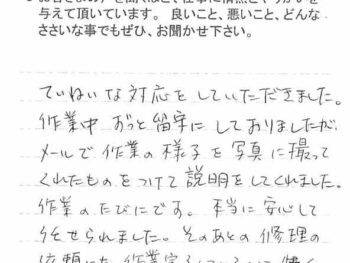 与えて頂いています。 良いこと、悪いこと、どんな
ささいな事でもぜひ、お聞かせ下さい。
ていねいな対応をしていただきました。
作業中ずっと留守にしておりましたが、
メールで作業の様子を写真に撮って
くれたものをつけて説明をしてくれました。
作業のたびにです。本当に安心して
任せられました。そのあとの修理の